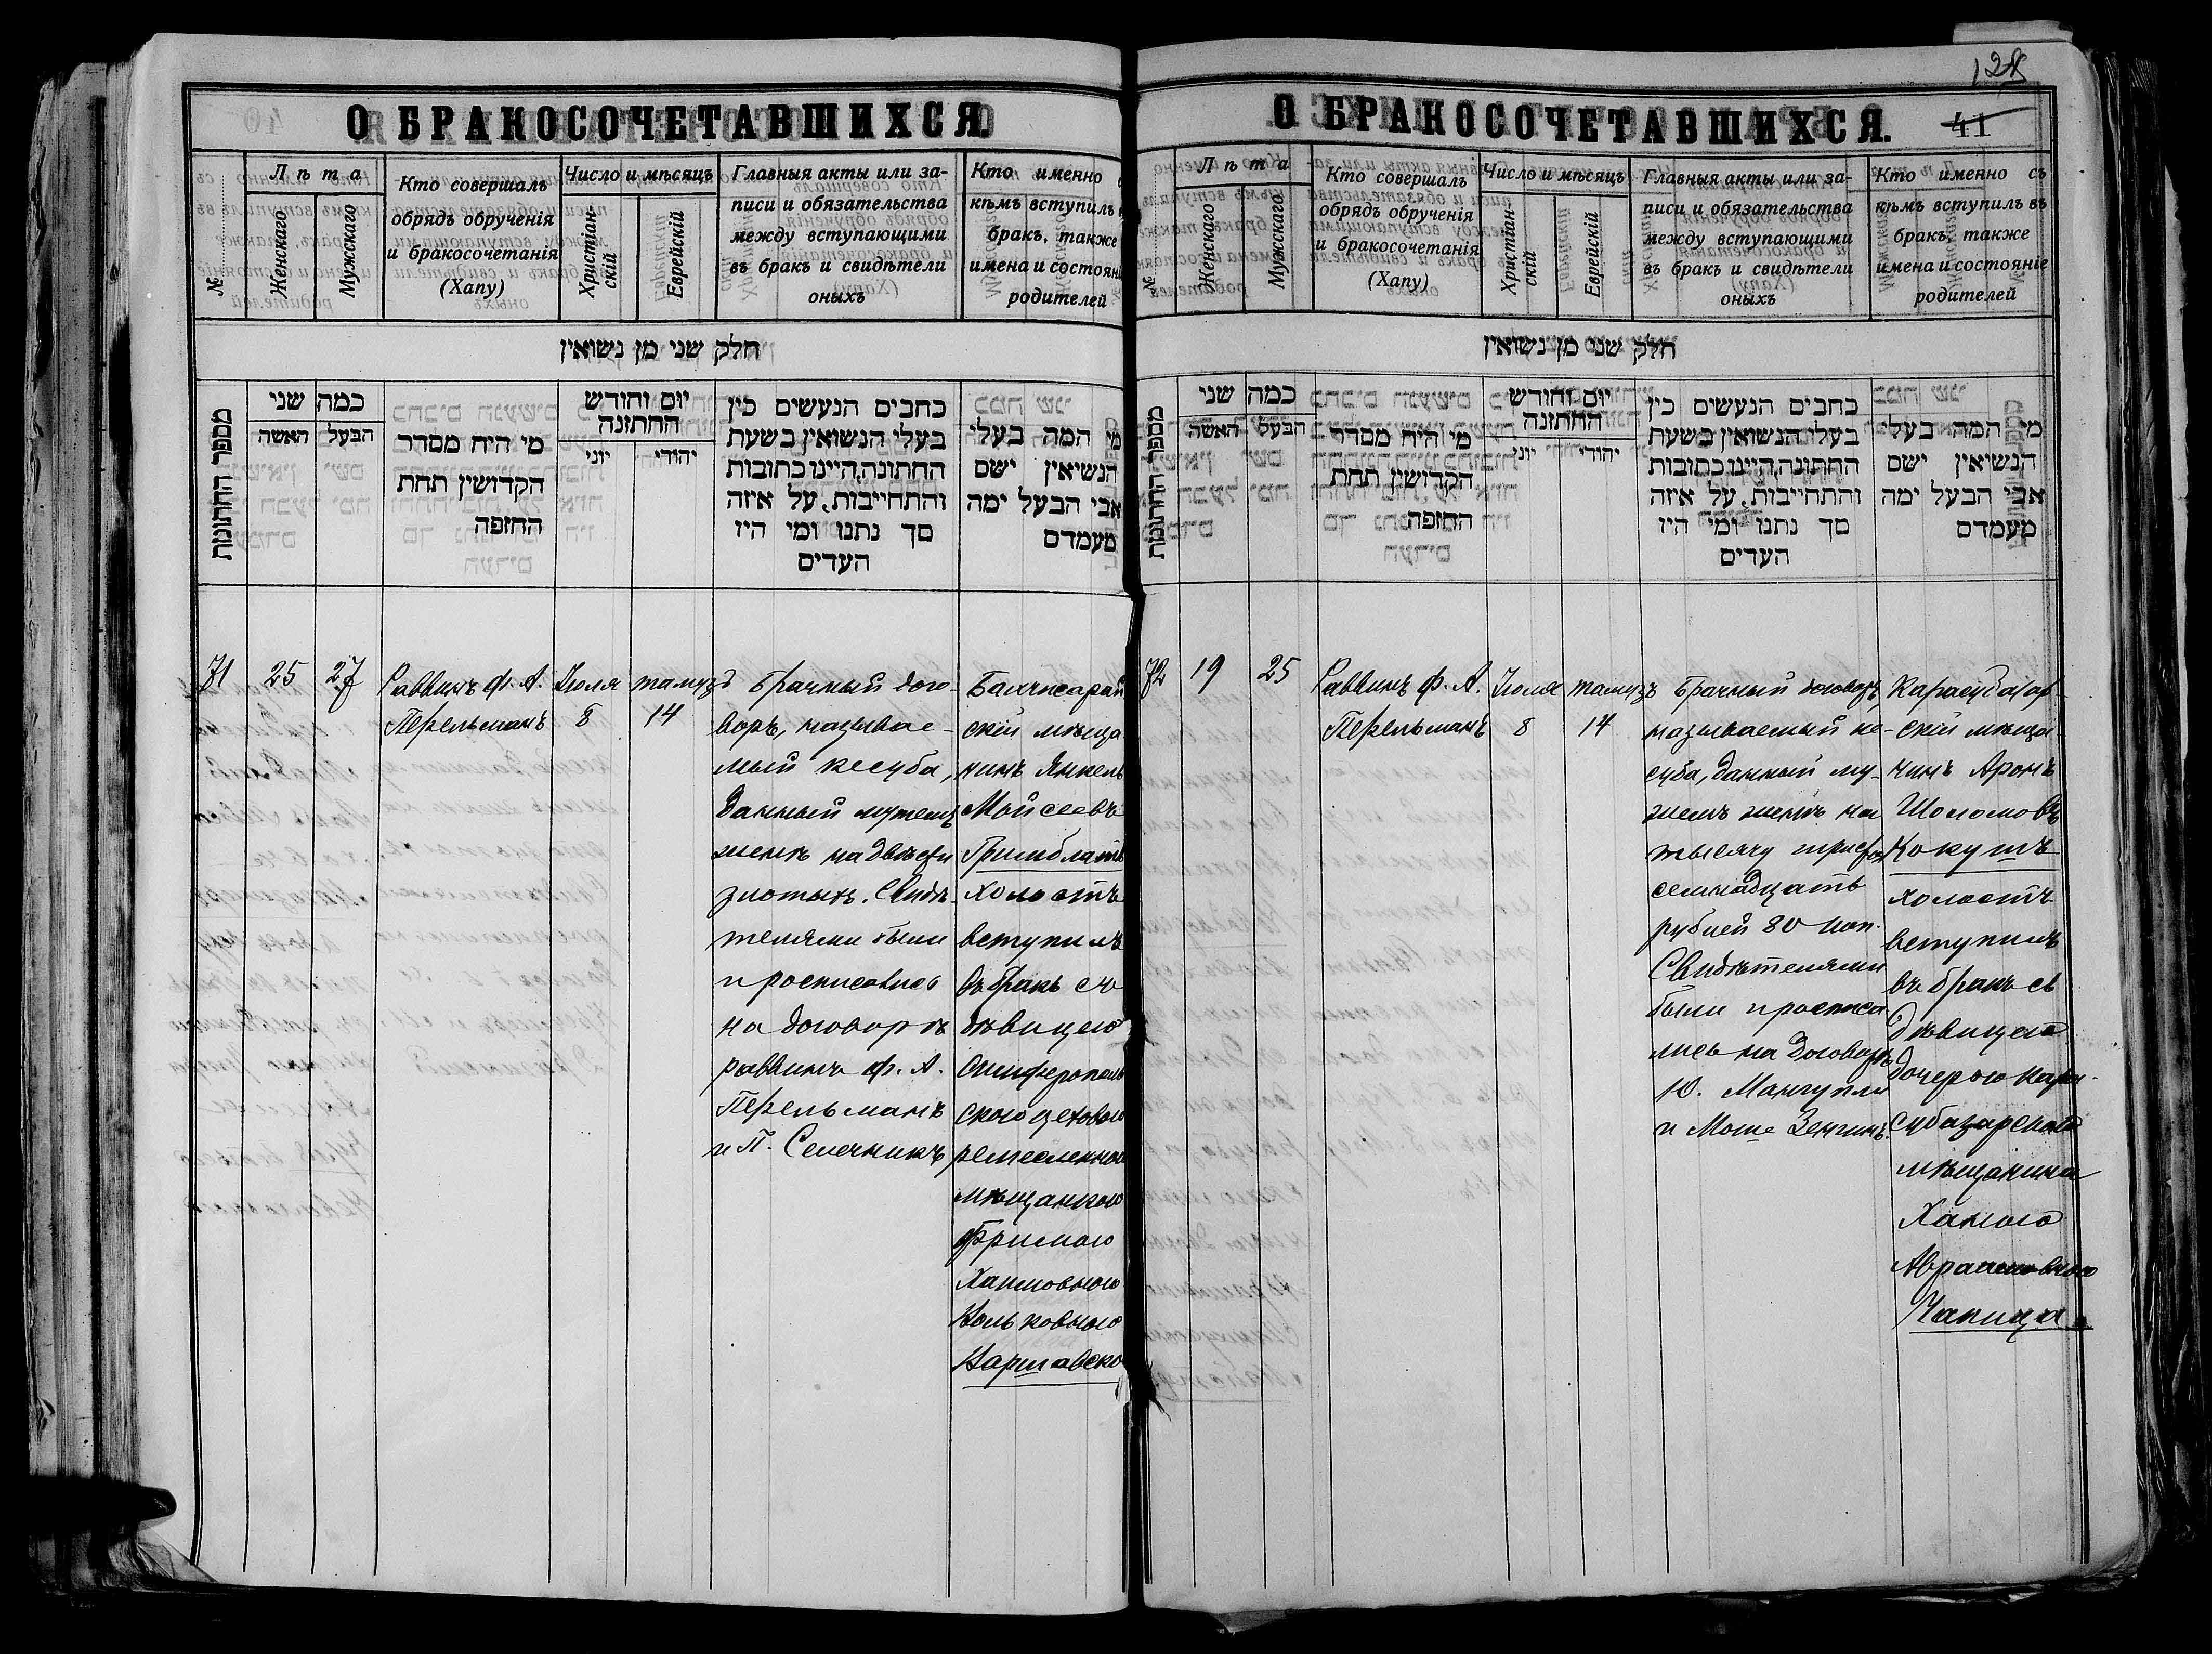 О БРАКОСОЧЕТАВШИХСЯ
№
Лѣта
Женскаго
Мужскаго
Кто совершалъ
обрядъ обрученія
и бракосочетанія
(Хапу)
Число и мѣсяцъ
Христіан-
скій
Еврейскій
Главныя акты или за-
писи и обязательства
между вступающими
въ бракъ и свидѣтели
оныхъ
Кто именно
кѣмъ вступилъ
бракъ, также
имена и состояні
родителей
חלק שני מן נשואין
מספר החתונות
כמה שני
האשה
הבעל
מי היה מסדר
הקדושין תחת
החופה
יום וחודש
החתונה
יוני
יהודי
כתבים הנעשים בין
בעלי הנשואין בשעת
החתונה, היינו כתובות
והתחייבות, על איזה
סך נתנו ומי היו
העדים
מי המה בעלי
הנשיאין ישם
אבי הבעל ימה
מעמדם
71
25
27
Раввинъ Ф. А.
Перельманъ
Іюля
8
тамузъ
14
Брачный дого-
воръ, называе-
мый кесуба,
данный мужемъ
женѣ на двѣсти
злотыхъ. Свидѣ-
телями были
и росписались
на договорѣ
раввинъ Ф. А.
Перельманъ
и П. Сѣлечникъ
Бахчисарай
скій мѣща
нинъ Янкель
Мойсеевъ
Гринблатъ
холостъ
вступилъ
въ бракъ съ
дѣвицею
симферополь
скою цеховою
ремесленною
мѣщанкою
Фримою
Хаимовною
Волько́вною
Варшавско
128
О БРАКОСОЧЕТАВШИХСЯ.
41
№
Лѣта
Женскаго
Мужскаго
Кто совершалъ
обрядъ обрученія
и бракосочетанія
(Хапу)
Число и мѣсяцъ
Христіан-
скій
Еврейскій
Главныя акты или за-
писи и обязательства
между вступающими
въ бракъ и свидѣтели
оныхъ
Кто именно съ
кѣмъ вступилъ въ
бракъ, также
имена и состояніе
родителей
חלק שני מן נשואין
מספר החתונות
כמה שני
האשה
הבעל
מי היה מסדר
הקדושין תחת
החופה
יום וחודש
החתונה
יוני
יהודי
כתבים הנעשים בין
בעלי הנשואין בשעת
החתונה, היינו כתובות
והתחייבות, על איזה
סך נתנו ומי היו
העדים
מי המה בעלי
הנשיאין ישם
אבי הבעל ימה
מעמדם
72
19
25
Раввинъ Ф. А.
Перельманъ
Іюля
8
тамузъ
14
Брачный договоръ,
называемый ке-
суба, данный му-
жемъ женѣ на
тысячу триста
семнадцать
рублей 80 коп.
Свидѣтелями
были и росписа
лись на договорѣ
Ю. Мангупли
и Моше Зенгинъ.
Карасубазар-
скій мѣща-
нинъ Аронъ
Шоломовъ
Кокушъ
холостъ
вступилъ
въ бракъ съ
дѣвицею
дочерью Кара-
субазарскаго
мѣщанина
Ханою
Авраамовною
Чапича